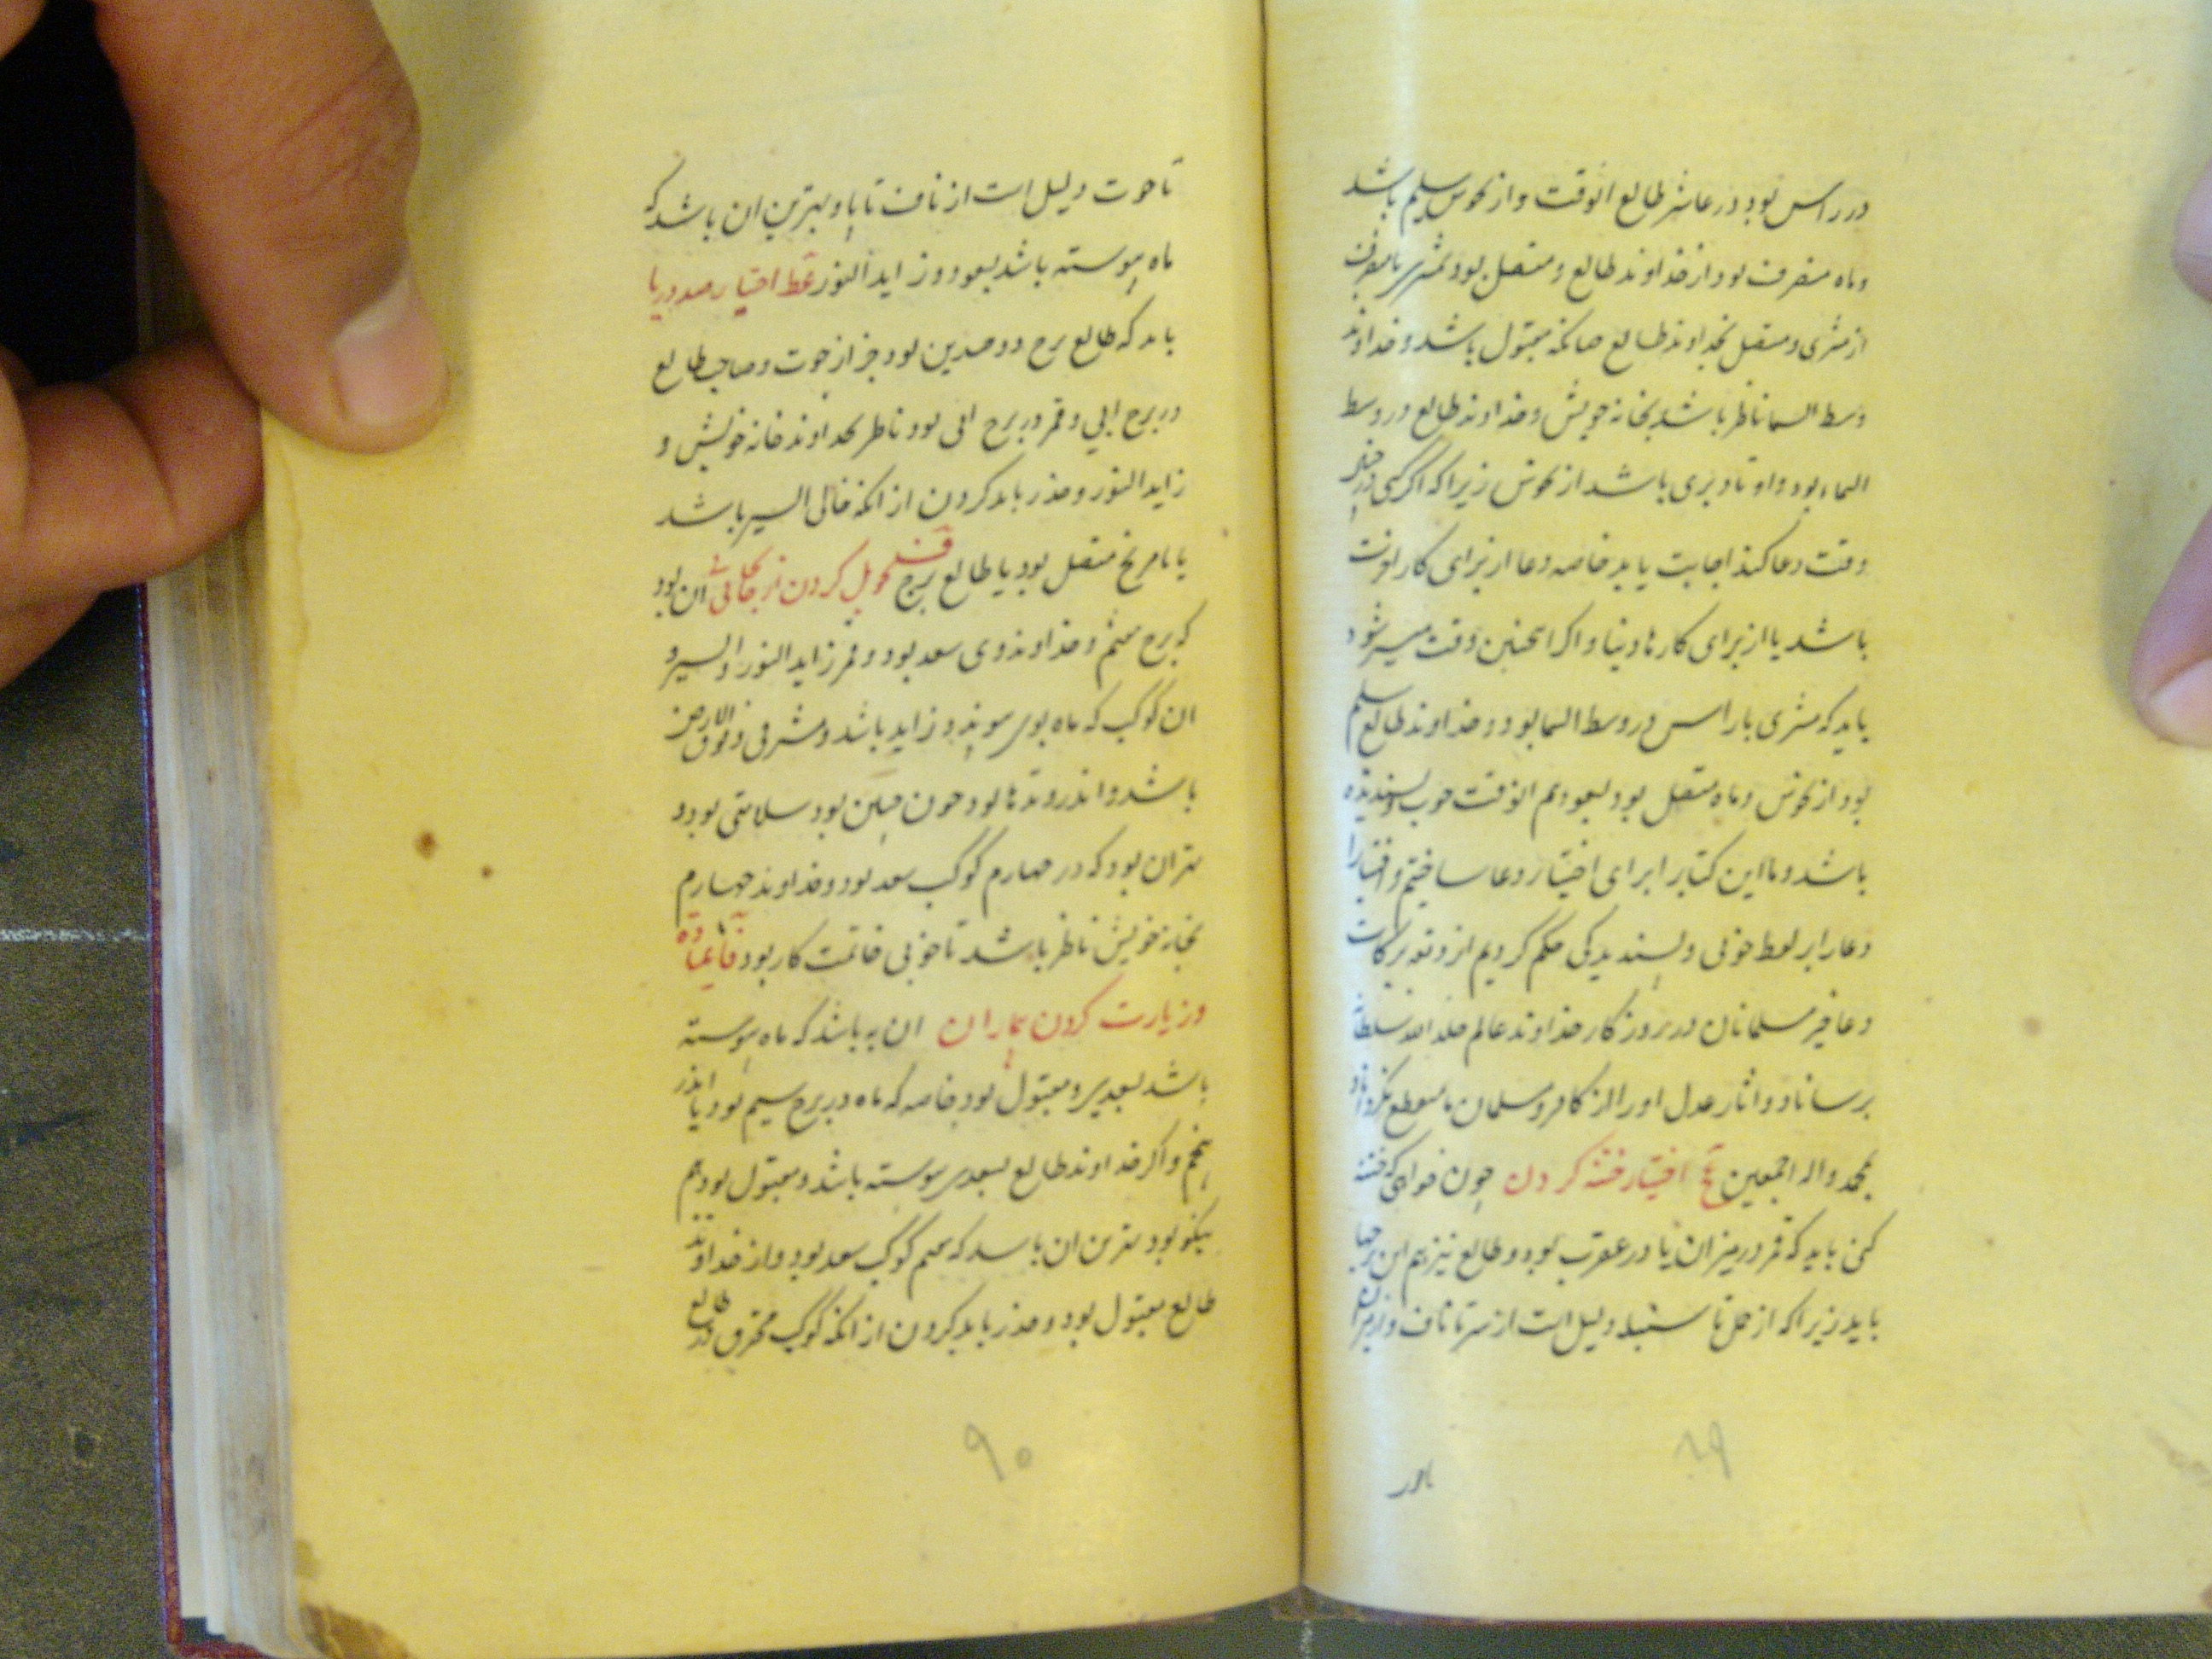 در راس بود در عاشر طالع الوقت و از نحوس سلیم باشد
و ماه منصرف بود از خداوند طالع و متصل بود بمشتری یا منصرف
از مشتری و متصل بخداوند طالع چنانکه مقبول باشد و خداوند
وسط السما ناظر باشد بخانه خویش و خداوند طالع در وسط
السماء بود و اوتاد بری باشد از نحوس زیرا که اگر کسی در
وقت دعا کند اجابت یابد خاصه دعا از برای کار اخرت
باشد یا از برای کارها دنیا و اگر اینچنین وقت میسر شود
باید که مشتری با راس در وسط السما بود و خداوند طالع سلیم
بود از نحوس و ماه متصل بود بسعود هم الوقت خوب و پسندیده
باشد و ما این کتابرا برای اختیار دعا ساختیم و اختیار
دعا را بر لفظ خوبی و پسندیدکی حکم کردیم ایزد برکات
دعا خیر مسلمانان در روزکار خداوند عالم خلد الله سلطانه
برساناد و اثار عدل او را از کافر و مسلمان منقطع نکرداناد
بمحمد و اله اجمعین اختیار ختنه کردن چون خواهی که ختنه
کنی باید که قمر در میزان یا در عقرب بود و طالع نیز هم این برجها
باید زیرا که از حمل تا سنبله دلیل است از سر تا ناف و از میزان
باور
۸۹
تا حوت دلیل است از ناف تا پا و بهترین ان باشد که
ماه پیوسته باشد بسعود و زاید النور عط اختیار صید دریا
باید که طالع برج دو جسدین بود جز از حوت و صاحب طالع
در برج ابی و قمر در برج ابی بود ناظر بخداوند خانه خویش و
زاید النور و حذر باید کردن از انکه خالی السیر باشد
یا با مریخ متصل بود یا طالع برج ف تحویل کردن از جائی بجائی ان بود
که برج هشتم و خداوند وی سعد بود و قمر زاید النور و السیر و
ان کوکب که ماه بوی پیوندد زاید باشد و مشرقی و فوق الارض
باشد و اندر وتدها بود چون چنین بود سلامتی بود و
بهتر ان بود که در چهارم کوکب سعد بود و خداوند چهارم
بخانه خویش ناظر باشد تا خوبی خاتمت کار بود فا عیاده
و زیارت کردن بیماران ان به باشد که ماه پیوسته
باشد بسعدی و مقبول بود خاصه که ماه در برج سیم بود یا اندر
پنجم و اگر خداوند طالع بسعدی پیوسته باشد و مقبول بود هم
نیکو بود بهترین ان باشد که کوکب سعد بود و از خداوند
طالع مقبول بود و حذر باید کردن از انکه کوکب محترق در طالع
۹۰